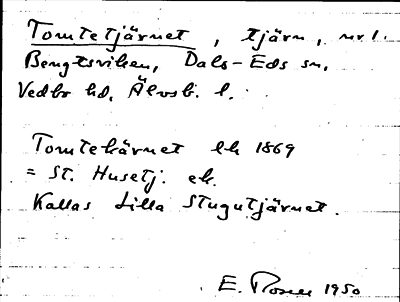 Tomtetjärnet, tjärn, nr 1.
Bengtsviken, Dals-Eds sn,
Vedbo hd, Älvsb. l.
Tomtekärnet lk 1869
= St. Husetj. ek.
Kallas Lilla Stugutjärnet.
E. Rosen 1950